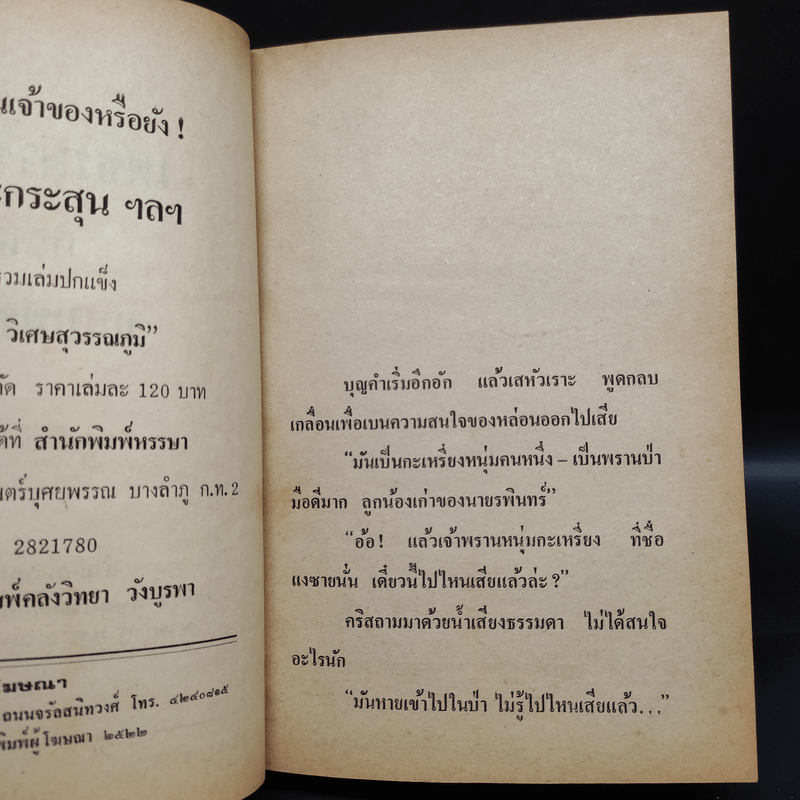 นเจ้าของหรือยัง !
กระสุน ฯลฯ
รวมเล่มปกแข็ง
วิเศษสุวรรณภูมิ”
ราคาเล่มละ 120 บาท
ได้ที่ สำนักพิมพ์หรรษา
บุศยพรรณ บางลำภู ก.ท.2
2821780
พ์คลังวิทยา วังบูรพา
โฆษณา
ถนนจรัลสนิทวงศ์ โทร. ๔๒๔๐๘๑๕
พิมพ์ผู้โฆษณา ๒๕๒๒
บุญคำเริ่มอึกอัก แล้วเสหัวเราะ พูดกลบ
เกลื่อนเพื่อเบนความสนใจของหล่อนออกไปเสีย
“มันเป็นกะเหรี่ยงหนุ่มคนหนึ่ง – เป็นพรานป่า
มือดีมาก ลูกน้องเก่าของนายรพินทร์”
“อ้อ! แล้วเจ้าพรานหนุ่มกะเหรี่ยง ที่ชื่อ
แงซายนั่น เดี๋ยวนี้ไปไหนเสียแล้วล่ะ ?”
คริสถามมาด้วยน้ำเสียงธรรมดา ไม่ได้สนใจ
อะไรนัก
“มันหายเข้าไปในป่า ไม่รู้ไปไหนเสียแล้ว...”